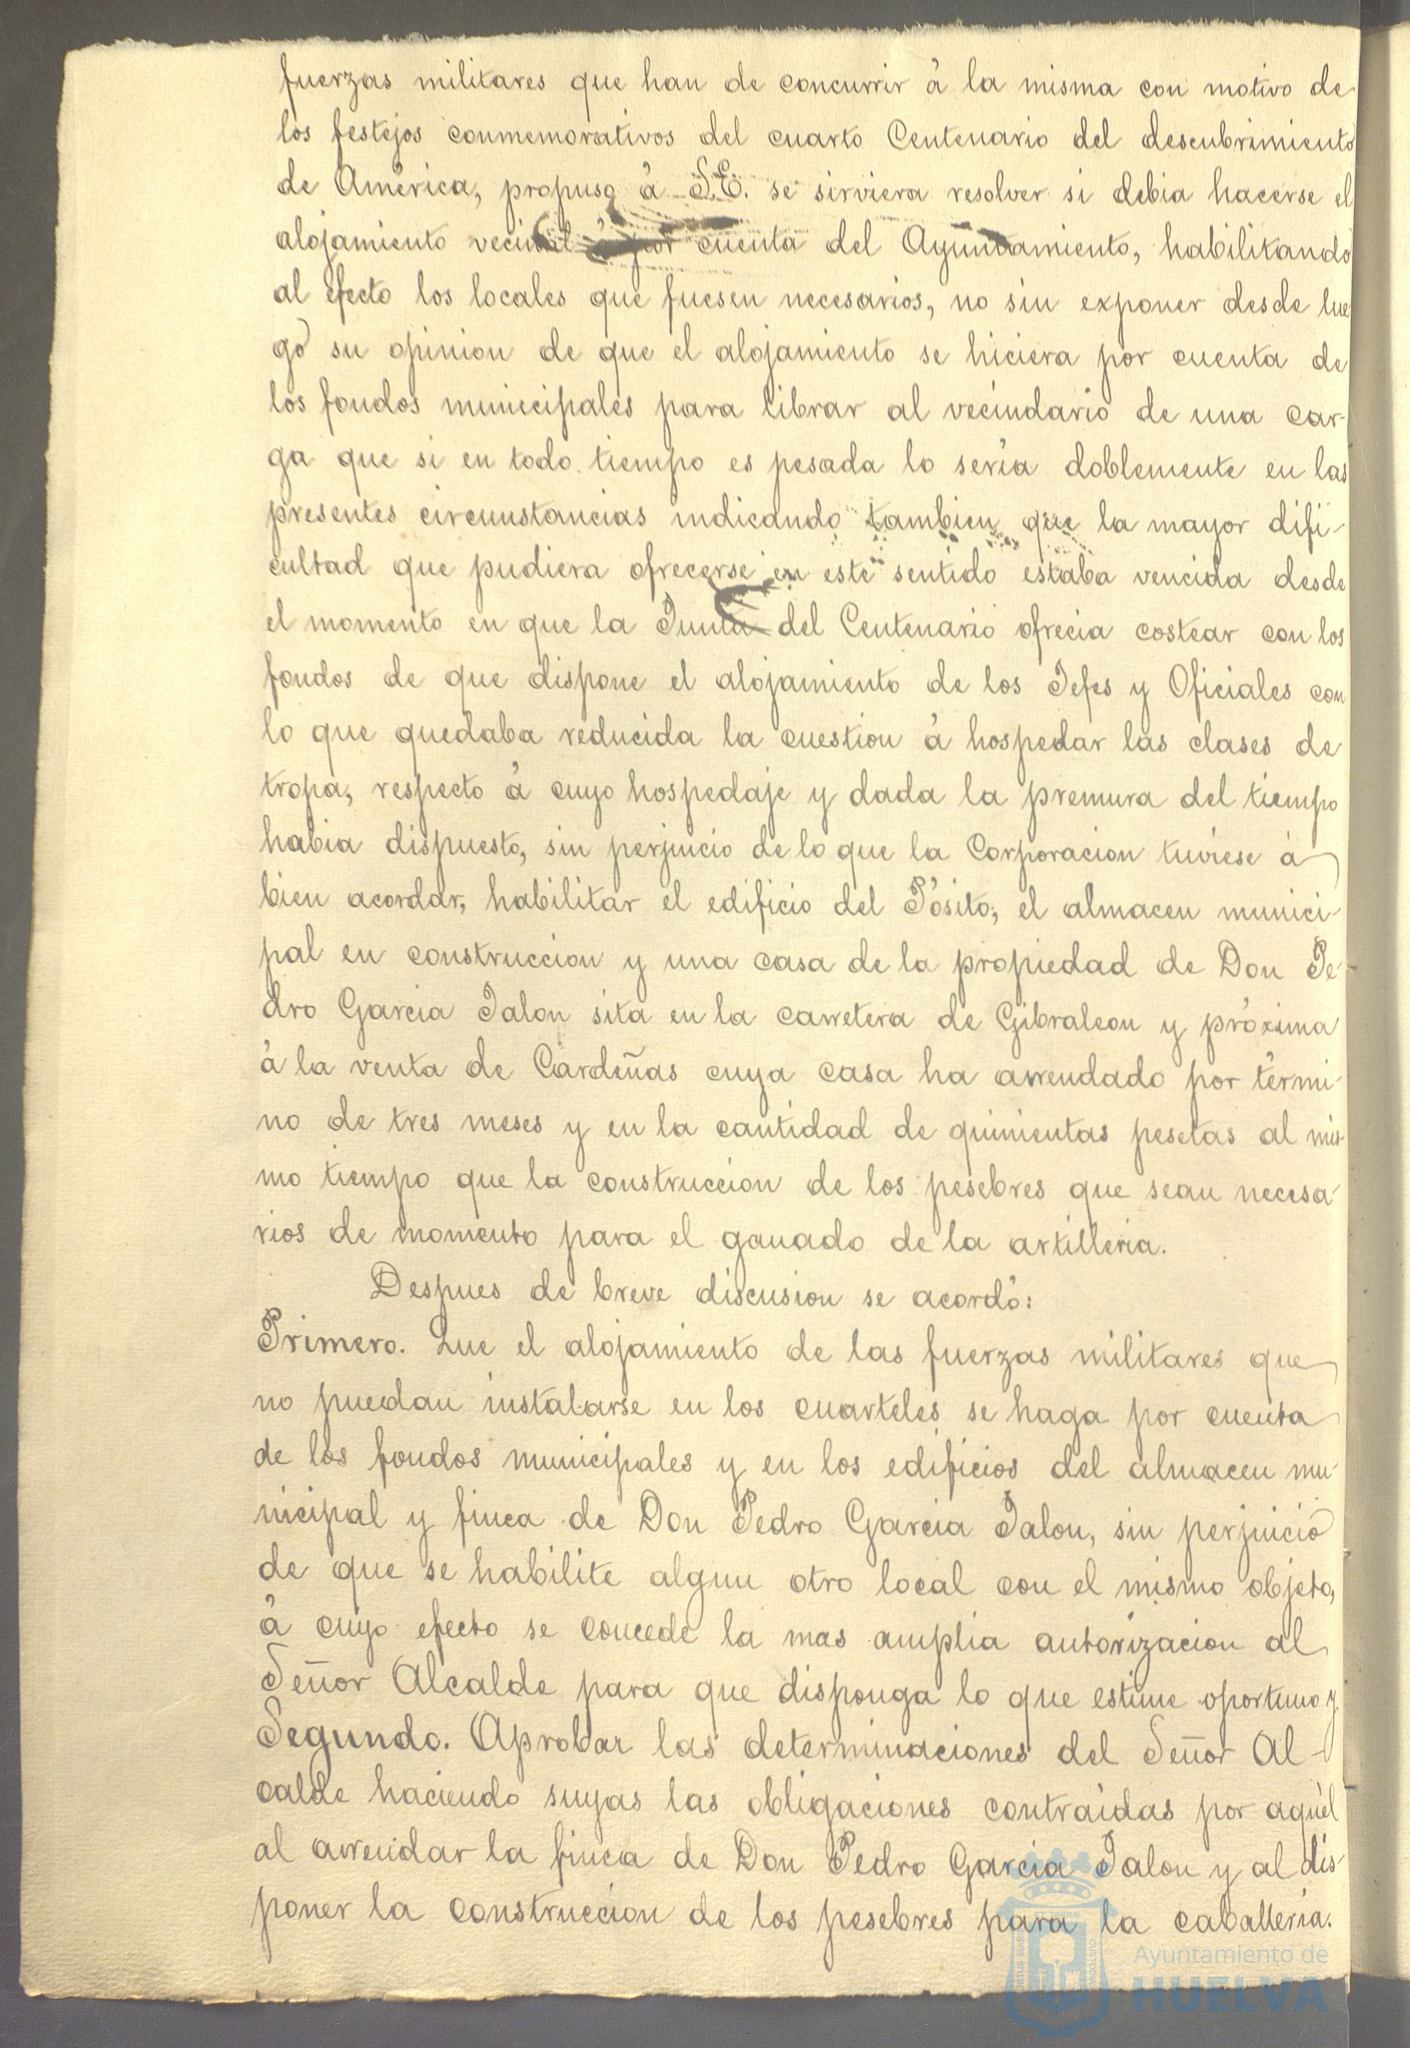 fuerzas militares que han de concurrir á la misma con motivo de
los festejos conmemorativos del cuarto Centenario del descubrimiento
de América, propuso á S.E. se sirviera resolver si debia hacerse el
alojamiento vecinal ó por cuenta del Ayuntamiento, habilitando
al efecto los locales que fuesen necesarios, no sin exponer desde lue
go su opinion de que el alojamiento se hiciera por cuenta de
los fondos municipales para librar al vecindario de una car-
ga que si en todo tiempo es pesada lo sería doblemente en las
presentes circunstancias indicando tambien que la mayor difi-
cultad que pudiera ofrecerse en este sentido estaba vencida desde
el momento en que la Junta del Centenario ofrecia costear con los
fondos de que dispone el alojamiento de los Jefes y Oficiales con
lo que quedaba reducida la cuestion á hospedar las clases de
tropa, respecto á cuyo hospedaje y dada la premura del tiempo
habia dispuesto, sin perjuicio de lo que la Corporacion tuviese á
bien acordar, habilitar el edificio del Pósito, el almacen munici-
pal en construccion y una casa de la propiedad de Don Pe-
dro Garcia Jalon sita en la carretera de Gibraleon y próxima
á la venta de Cardeñas cuya casa ha arrendado por térmi-
no de tres meses y en la cantidad de quinientas pesetas al mis-
mo tiempo que la construccion de los pesebres que sean necesa-
rios de momento para el ganado de la artilleria.
Despues de breve discusion se acordó:
Primero. Que el alojamiento de las fuerzas militares que
no puedan instalarse en los cuarteles se haga por cuenta
de los fondos municipales y en los edificios del almacen mu-
nicipal y finca de Don Pedro Garcia Jalon, sin perjuicio
de que se habilite algun otro local con el mismo objeto,
á cuyo efecto se concede la mas amplia autorizacion al
Señor Alcalde para que disponga lo que estime oportuno y
Segundo. Aprobar las determinaciones del Señor Al-
calde haciendo suyas las obligaciones contraidas por aquél
al arrendar la finca de Don Pedro Garcia Jalon y al dis-
poner la construccion de los pesebres para la caballeria.
Ayuntamiento de
HUELVA